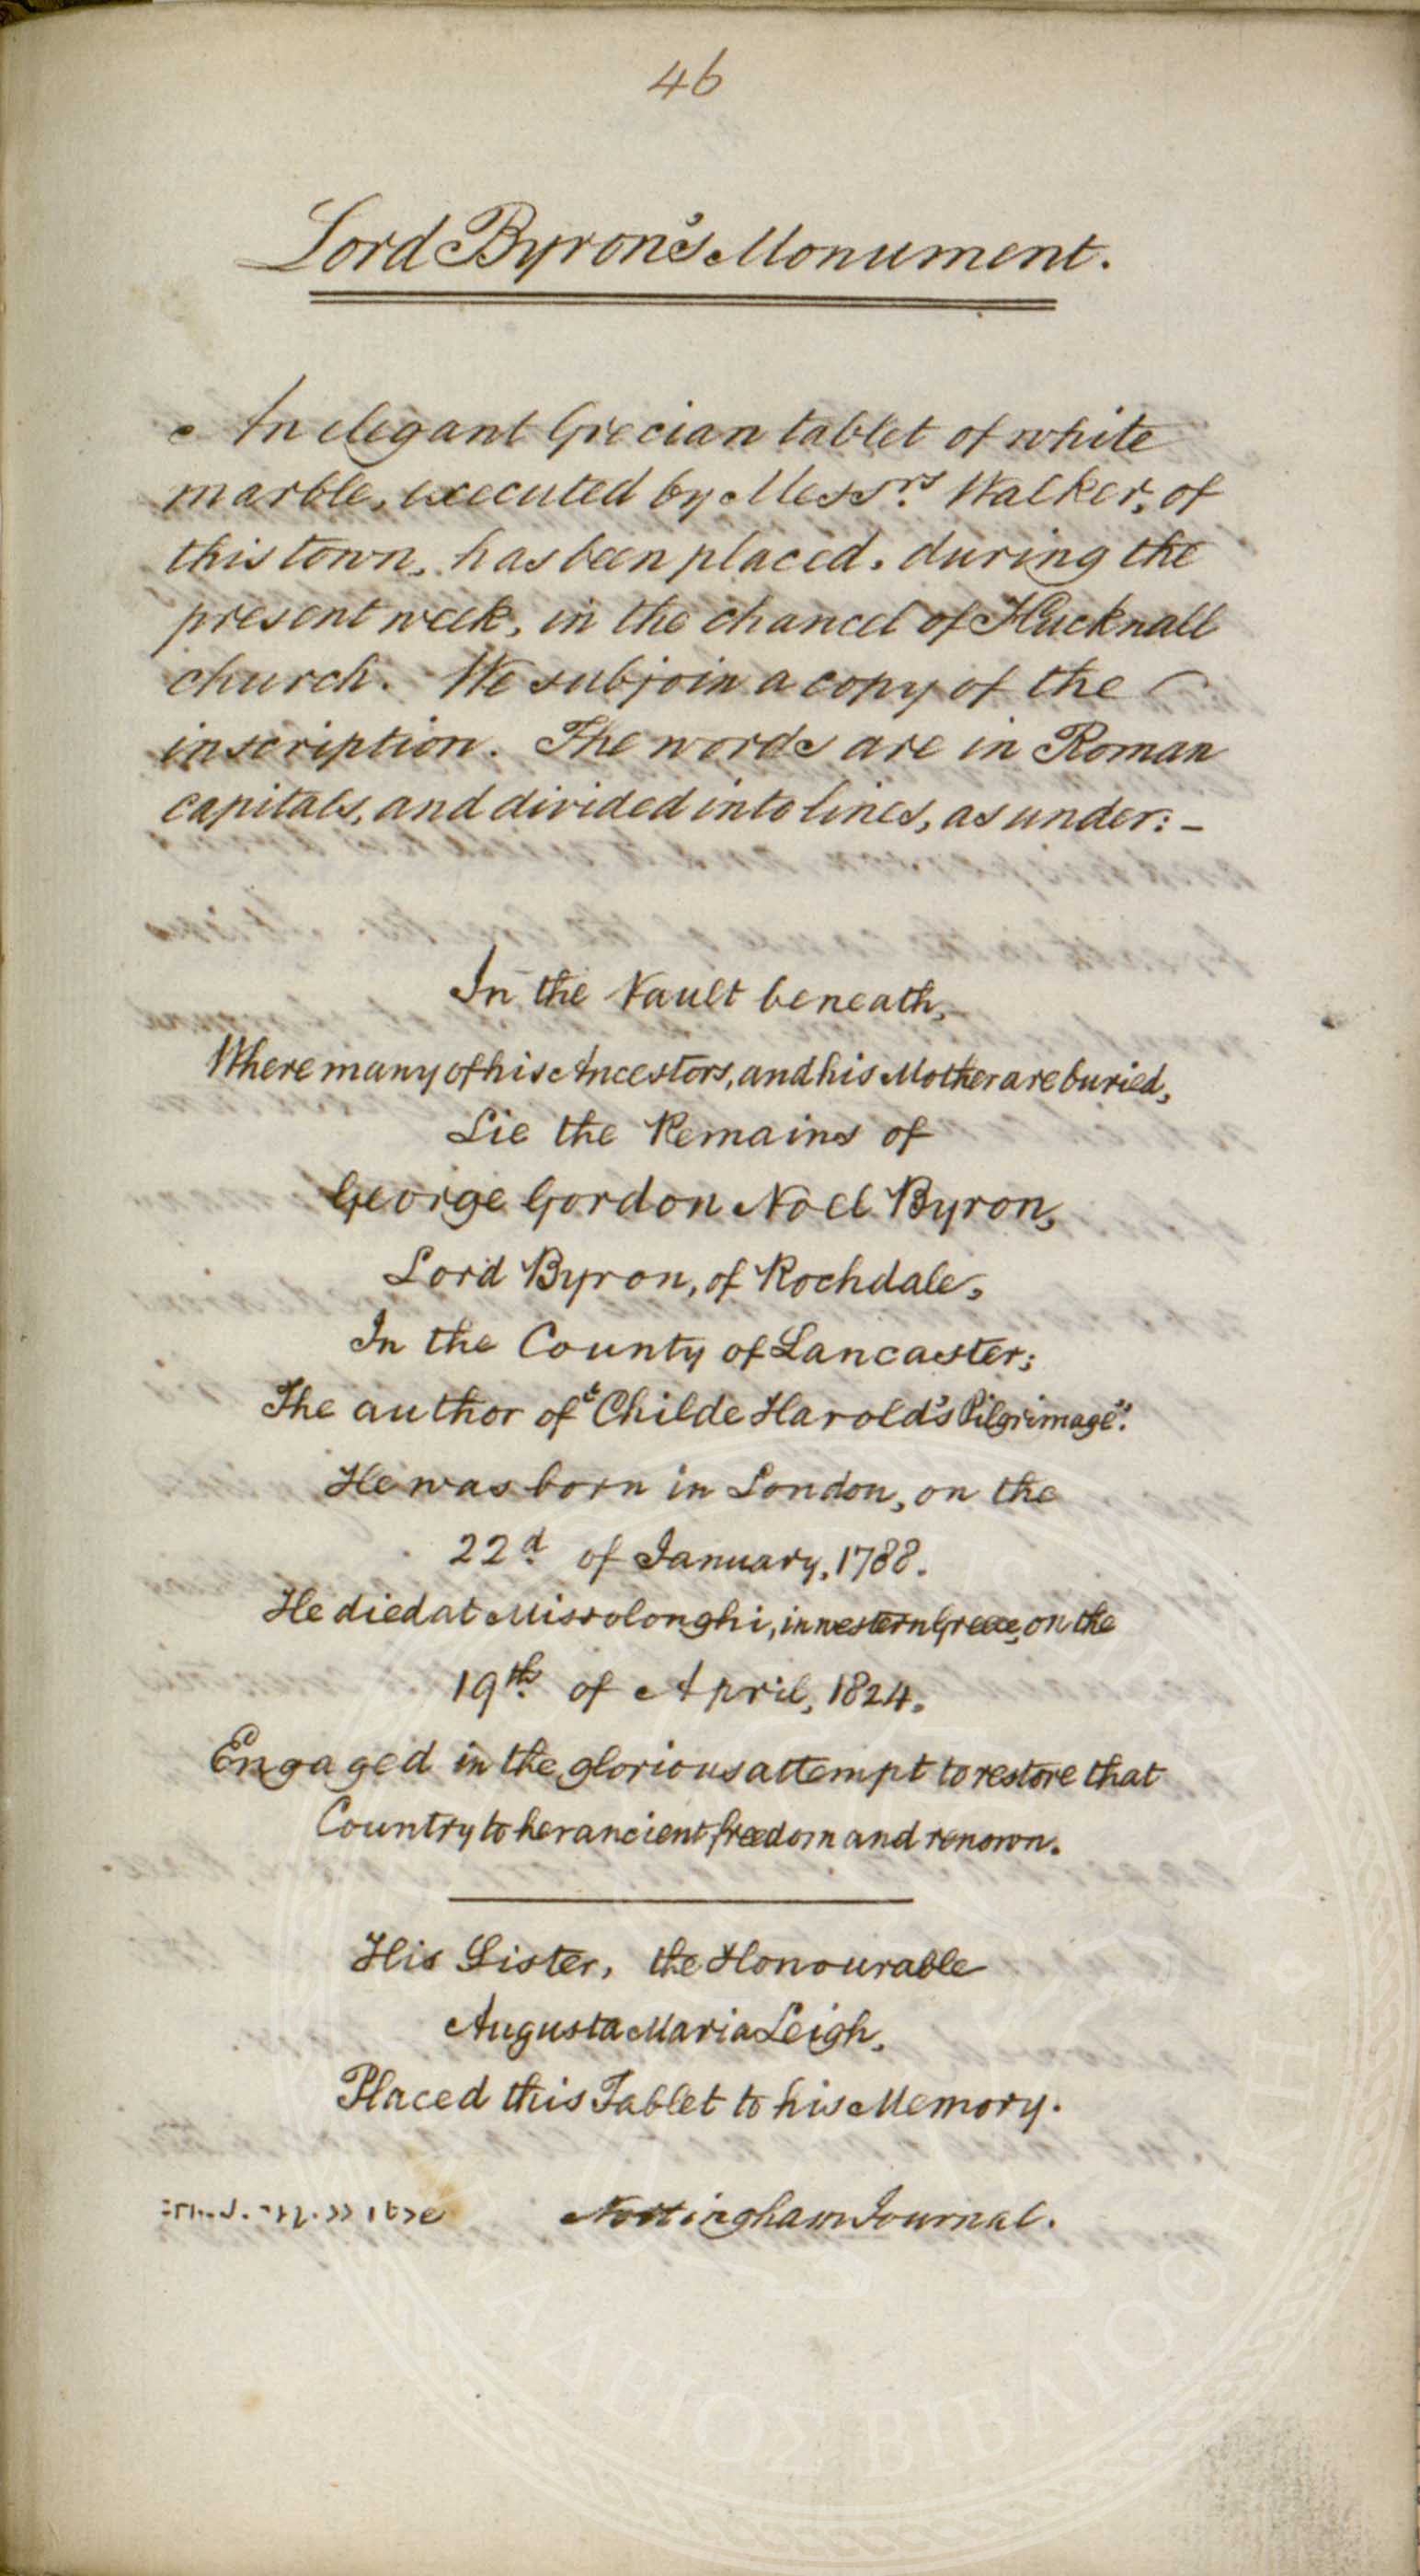 46
Lord Byron's Monument.
An elegant Grecian tablet of white
marble, executed by Messrs. Walker, of
this town, has been placed, during the
present week, in the chancel of Hucknall
church. We subjoin a copy of the
inscription. The words are in Roman
capitals, and divided into lines, as under:-
In the Vault beneath,
Where many of his Ancestors, and his Mother are buried,
Lie the Remains of
George Gordon Noel Byron,
Lord Byron, of Rochdale,
In the County of Lancaster;
The author of "Childe Harold's Pilgrimage".
He was born in London, on the
22d. of January, 1788.
He died at Missolonghi, in western Greece, on the
19th. of April, 1824.
Engaged in the glorious attempt to restore that
Country to her ancient freedom and renown.
His Sister, the Honourable
Augusta Maria Leigh,
Placed this Tablet to his Memory.
Nottingham Journal.
ΒΙΒΛΙΟΘΗΚΗ